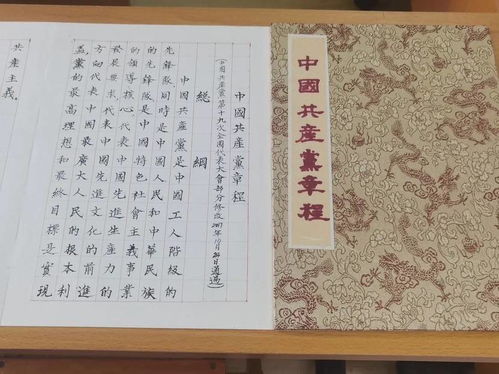 中國共產黨章程
中國共產黨章程
(中國共產黨第十九次全国代表大會部分修改2017年10月24日通過)
總綱
中國共產黨是中國工人階級的
先鋒隊同時是中國人民和中華民族
的先鋒隊是中國特色社會主義事業
的領導核心代表中國先進生產力的
發展要求代表中國先進文化的前進
方向代表中國最廣大人民的根本利
益。黨的最高理想和最終目標是實現
共產主義。